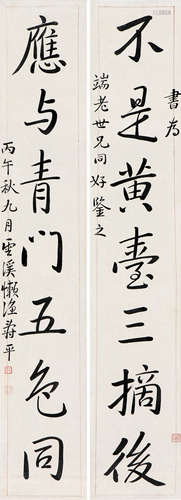 書為
不是黃臺三摘後
端老世兄同好鑒之
應与青門五色同
丙午秋九月雲溪懶漁蔣平